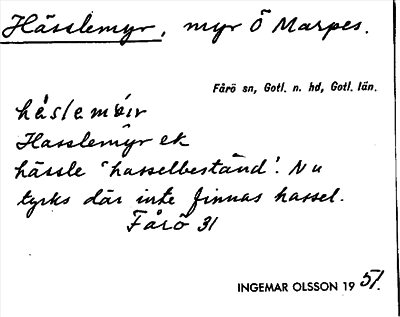 Hässlemyr, myr Ö Marpes.
Fårö sn, Gotl. n. hd, Gotl. län.
Hasslemyr ek
hässle 'hasselbestånd'. Nu
tycks där inte finnas hassel.
Fårö 31
INGEMAR OLSSON 1951.